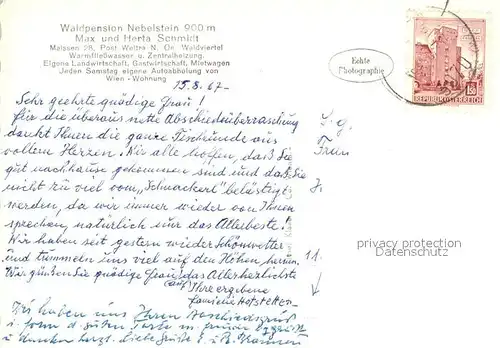 Waldpension Nebelstein 900 m
Max und Herta Schmidt
Maissen 28, Post Weitra N. Oe. Waldviertel
Warmfließwasser u. Zentralheizung.
Eigene Landwirtschaft, Gastwirtschaft, Mietwagen
Jeden Samstag eigene Autoabholung von
Wien - Wohnung
Echte
Photographie
REPUBLIK ÖSTERREICH
15.8.67-
Sehr geehrte gnädige Frau!
Für die überaus nette Abschiedüberraschung
dankt Ihnen die ganze Tischrunde aus
vollem Herzen. Wir alle hoffen, daß Sie
gut nachhause gekommen sind und daß Sie
nicht zu viel vom "Schnackerl" belästigt
werden, da wir immer wieder von Ihnen
sprechen, natürlich nur das Allerbeste!
Wir haben seit gestern wieder Schönwetter
und tummeln uns viel auf den Höhen herum.
Wir grüßen Sie gnädige Frau auf das Allerherzlichste
Ihre ergebene
familie Hofstetter
Wir haben uns Ihren Abschiedsgruß
i. form d. guten Torte
u. danken herzl.
S. g.
Frau
11.
privacy protection
watermarks